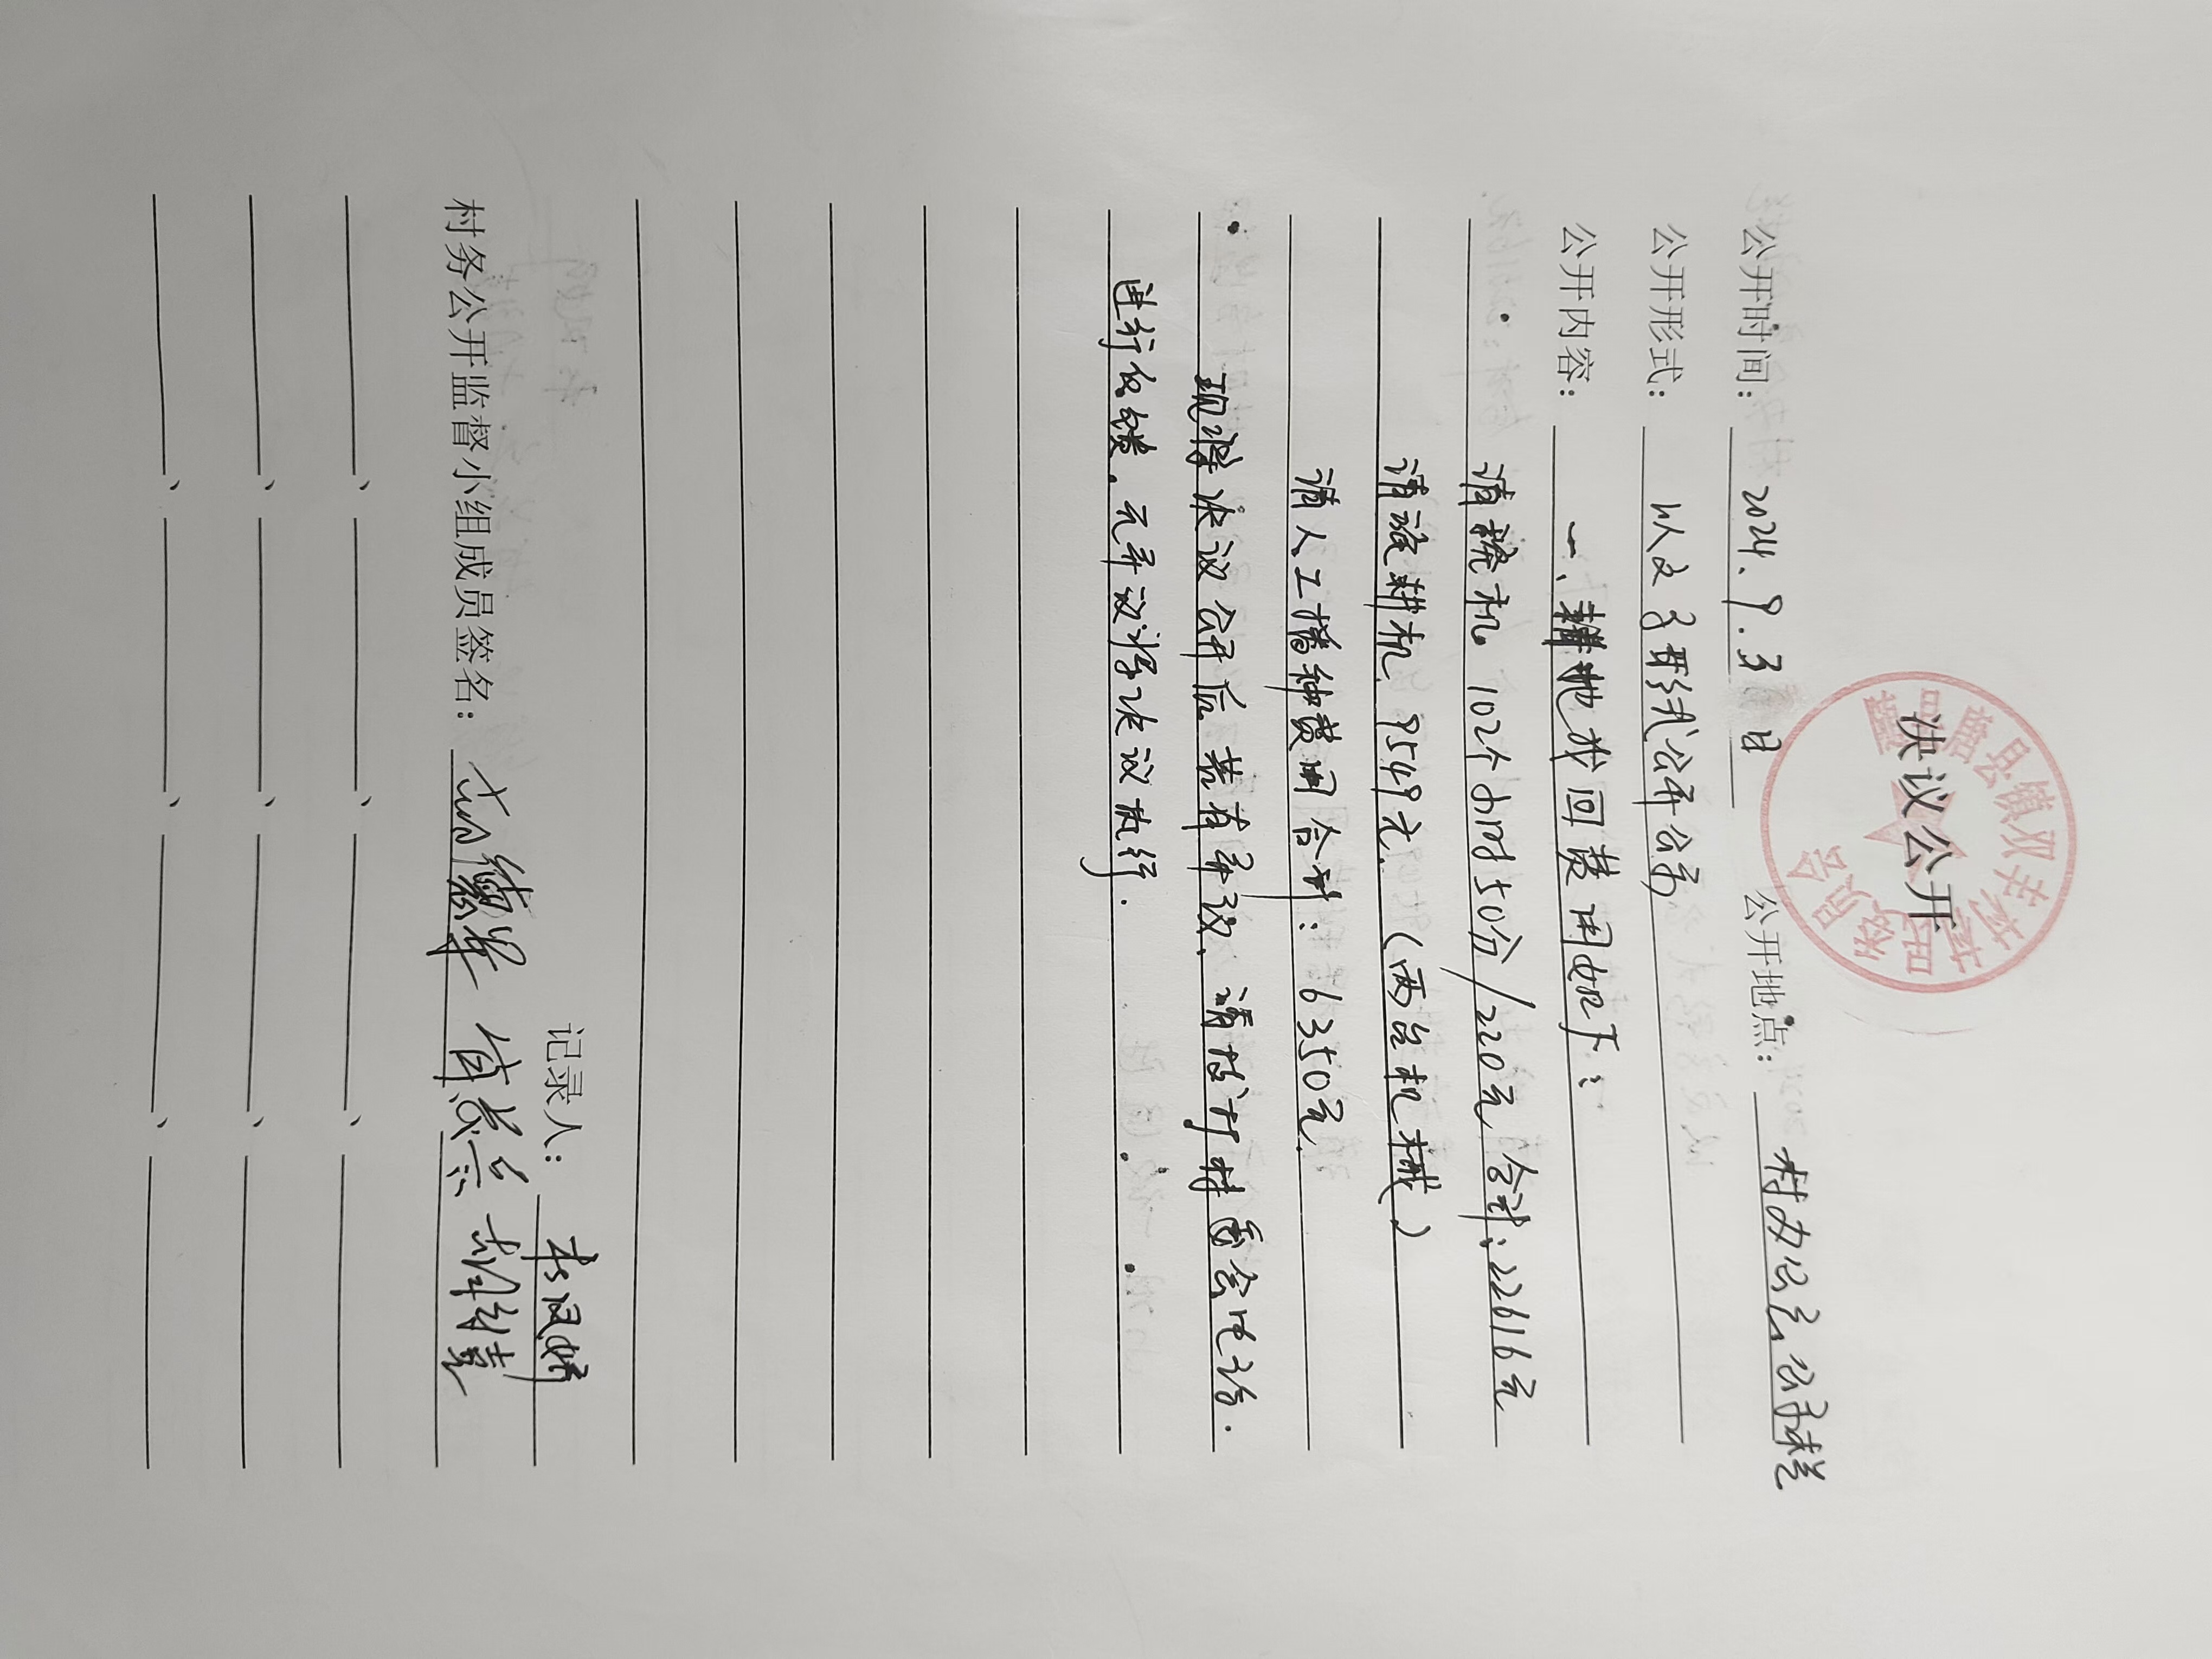 决议公开
公开时间：2024.9.3日 公开地点：村办公室公示栏
公开形式：以文字形式公开公示
公开内容：一、耕地收回费用如下：
请挖机 102个小时50分/220元 合计：22616元
请旋耕机 9549元（两台机械）
请人工播种费用合计：6350元
现将决议公开后若有异议，请找村村委会电话.
进行反馈.无异议将决议执行.
记录人：李汉
村务公开监督小组成员签名：